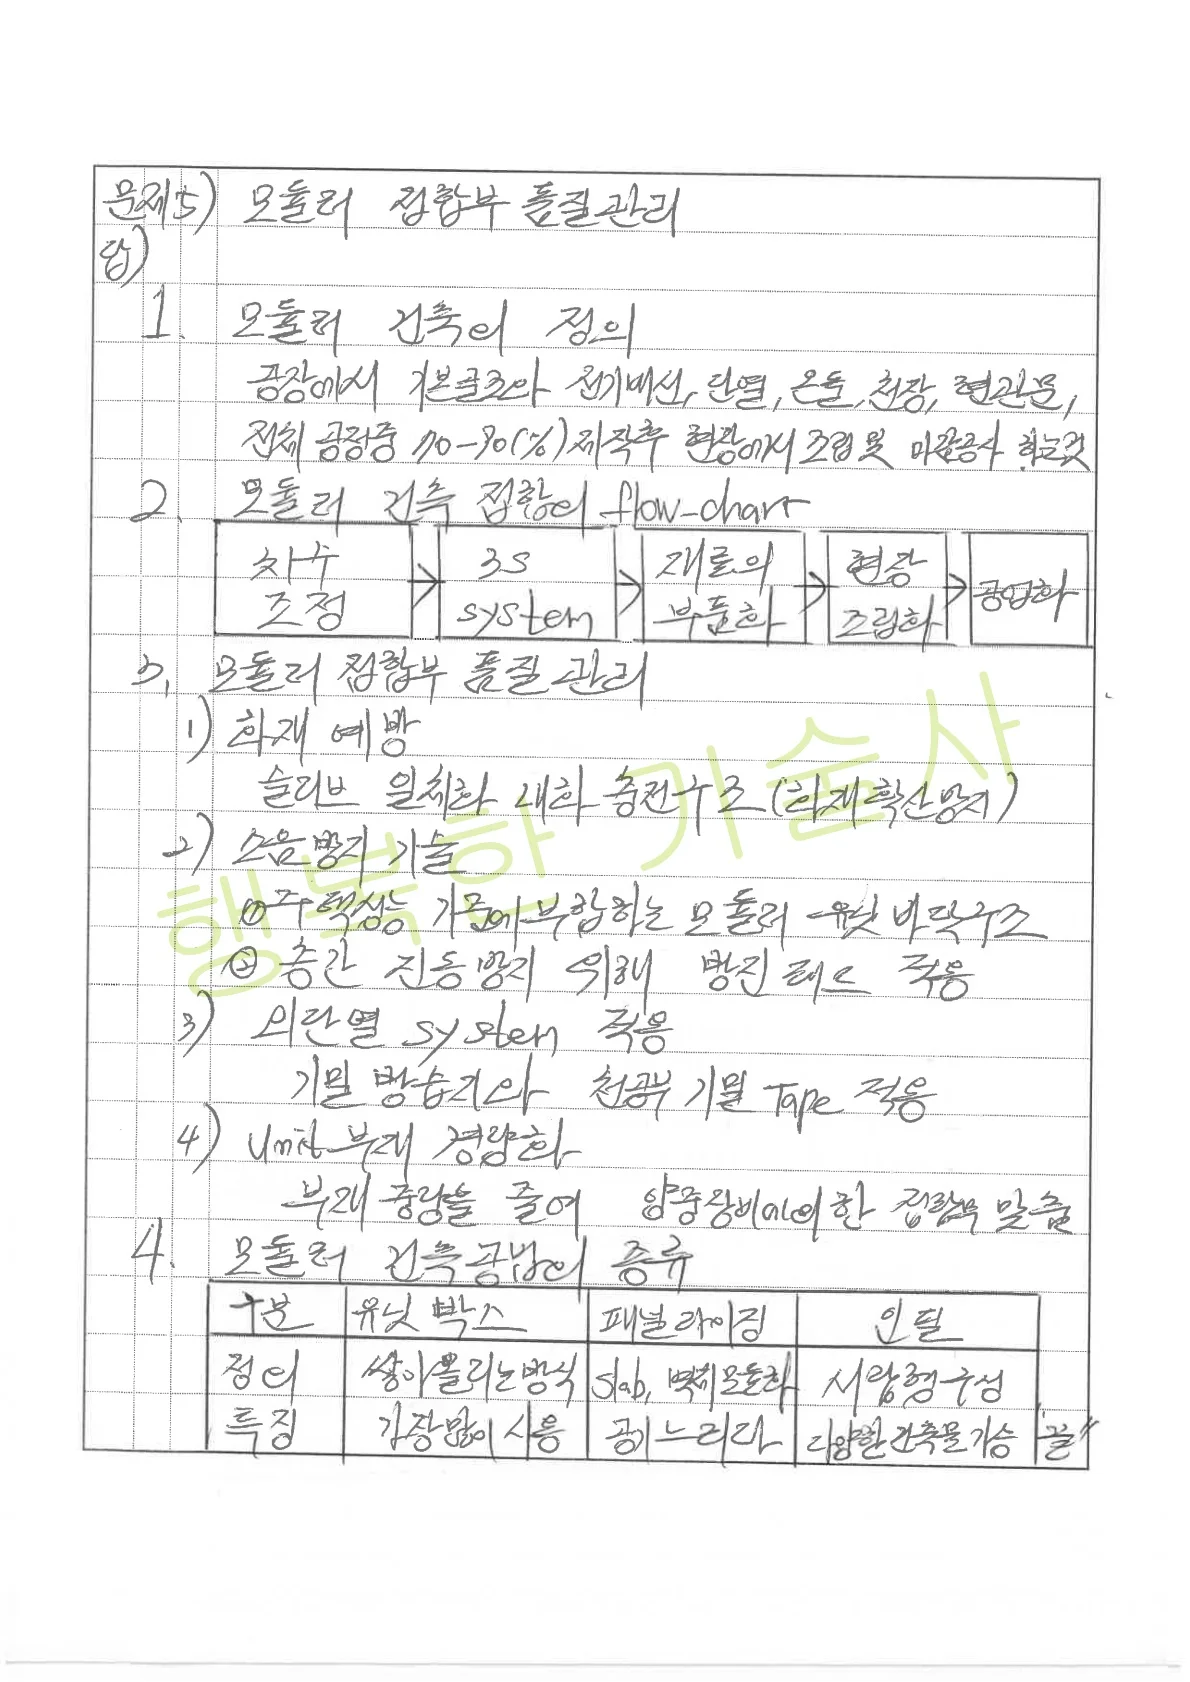 문제5) 모듈러 접합부 품질관리
답)
1. 모듈러 건축의 정의
공장에서 기본골조와 전기배선, 단열, 온돌, 천장, 현관문,
전체 공정중 70-90(%) 제작후 현장에서 조립 및 마감공사 하는것
2. 모듈러 건축 접합의 flow-chart
치수 조정 → 3S system → 재료의 부품화 → 현장 조립화 → 공업화
3. 모듈러 접합부 품질관리
1) 화재 예방
슬리브 일체화 내화 충전구조 (화재확산방지)
2) 소음방지 기술
① 주택성능 기준에 부합하는 모듈러 유닛 바닥구조
② 층간 진동방지 위해 방진패드 적용
3) 외단열 system 적용
기밀 방습지와 천공부 기밀 Tape 적용
4) Unit 부재 경량화
부재 중량을 줄여 양중장비에의한 접합부 맞춤
4. 모듈러 건축공법의 종류
구분 유닛박스 패널라이징 인필
정의 쌓아올리는방식 slab, 벽체모듈화 서랍형구성
특징 가장많이 사용 공기느리다 다양한건축물가능 "끝"
행복한 기술사